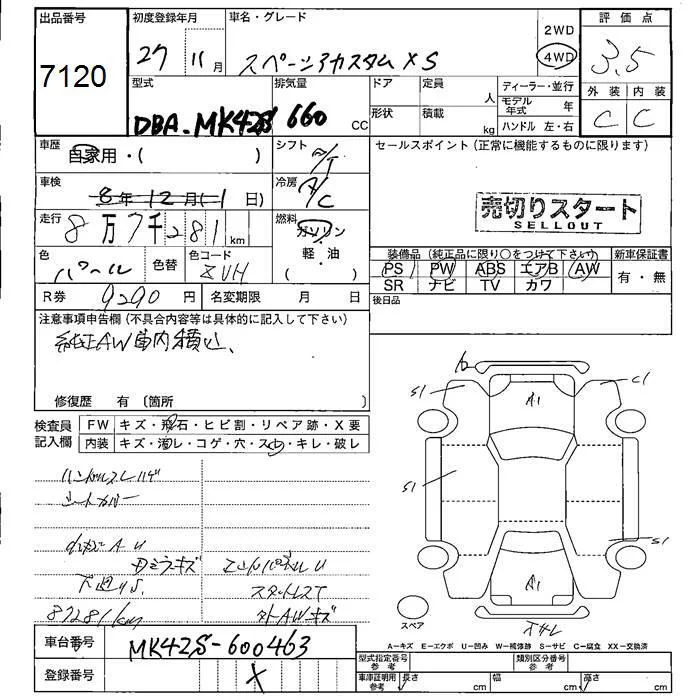 出品番号 初度登録年月 車名・グレード 評価点
7120 27 11月 スペーシアカスタム XS 2WD 4WD 3.5
型式 排気量 ドア 定員 人 ディーラー・並行 外装 内装
DBA-MK42S 660 CC 形状 積載 kg モデル年式 年 C C
ハンドル 左・右
車歴 自家用・( ) シフト A/T セールスポイント(正常に機能するものに限ります)
車検 8年12月(-1日) 冷房 A/C
売切りスタート
SELLOUT
走行 8万7千281km 燃料 ガソリン
軽・油
( )
色 パール 色替 色コード ZVH
装備品(純正品に限り○をつけて下さい) 新車保証書
PS PW ABS エアB AW 有・無
SR ナビ TV カワ
R券 9290円 名変期限 月 日 後日品
注意事項申告欄(不具合内容等は具体的に記入して下さい)
純正AW車内積込、
修復歴 有(箇所 )
検査員記入欄 FW キズ・飛石・ヒビ割・リペア跡・X要
内装 キズ・汚レ・コゲ・穴・スレ・キレ・破レ
ハンドルスレハゲ
シートカバー
AU
ミラーキズ エンドパネルU
下廻りS スタッドレスT
87281km 外AWキズ
S1 C1
A1
S1
S1
A1
スペア
A－キズ E－エクボ U－凹み W－補修跡 S－サビ C－腐食 XX－交換済
車台番号 MK42S-600463
登録番号 X
型式指定番号 参考 類別区分番号 参考
車庫証明用 参考 長さ cm 幅 cm 高さ cm